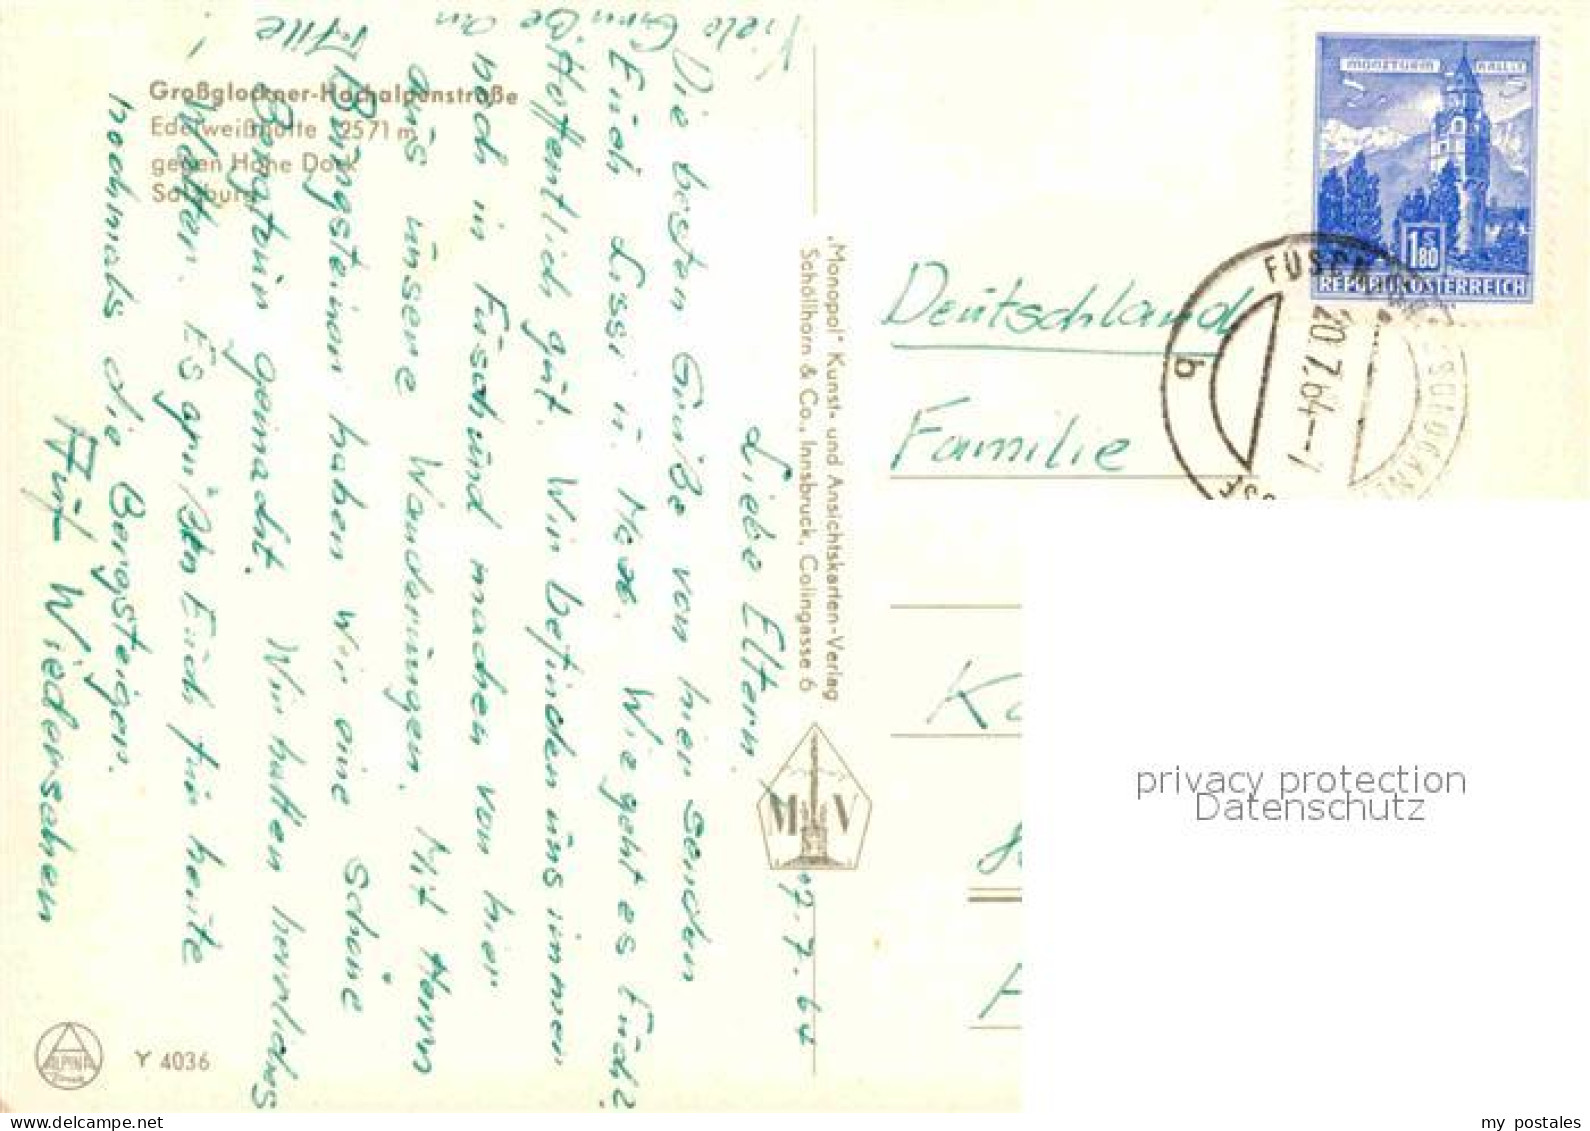 Großglockner-Hochalpenstraße
Edelweißhütte 2571 m
gegen Hohe Dock
Salzburg
7.7.64
Liebe Eltern.
Die besten Grüße von hier senden
Euch Lissi u. Max. Wie geht es Euch?
Hoffentlich gut. Wir befinden uns immer
noch in Fusch und machen von hier
aus unsere Wanderungen. Mit Herrn
Bürgsteiner haben wir eine schöne
Bergtour gemacht. Wir hatten herrliches
Wetter. Es grüßen Euch für heute
nochmals die Bergsteiger.
Auf Wiedersehen
Viele Grüße an
Alle
!
"Monopol" Kunst- und Ansichtskarten-Verlag
Schöllhorn & Co., Innsbruck, Colingasse 6
M V
ALPINA
Y 4036
MÜNZTURM HALL I. T.
1 S 80
REPUBLIK ÖSTERREICH
FUSCH
20.7.64--7
b
Deutschland
Familie
privacy protection
Datenschutz
my postales